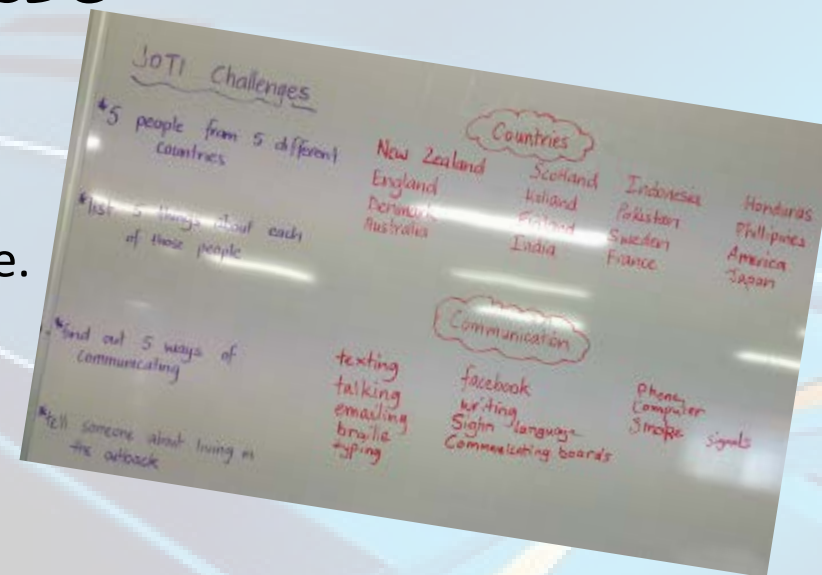 e.
JOTI Challenges
*5 people from 5 different
countries
*list 5 things about each
of those people
*find out 5 ways of
communicating
*tell someone about living in
the outback
Countries
New Zealand
England
Denmark
Australia
Scotland
Holland
Finland
India
Indonesia
Pakistan
Sweden
France
Honduras
Phillipines
America
Japan
Communication
texting
talking
emailing
braille
typing
facebook
writing
Sighn language
Communicating boards
Phone
Computer
Smoke signals